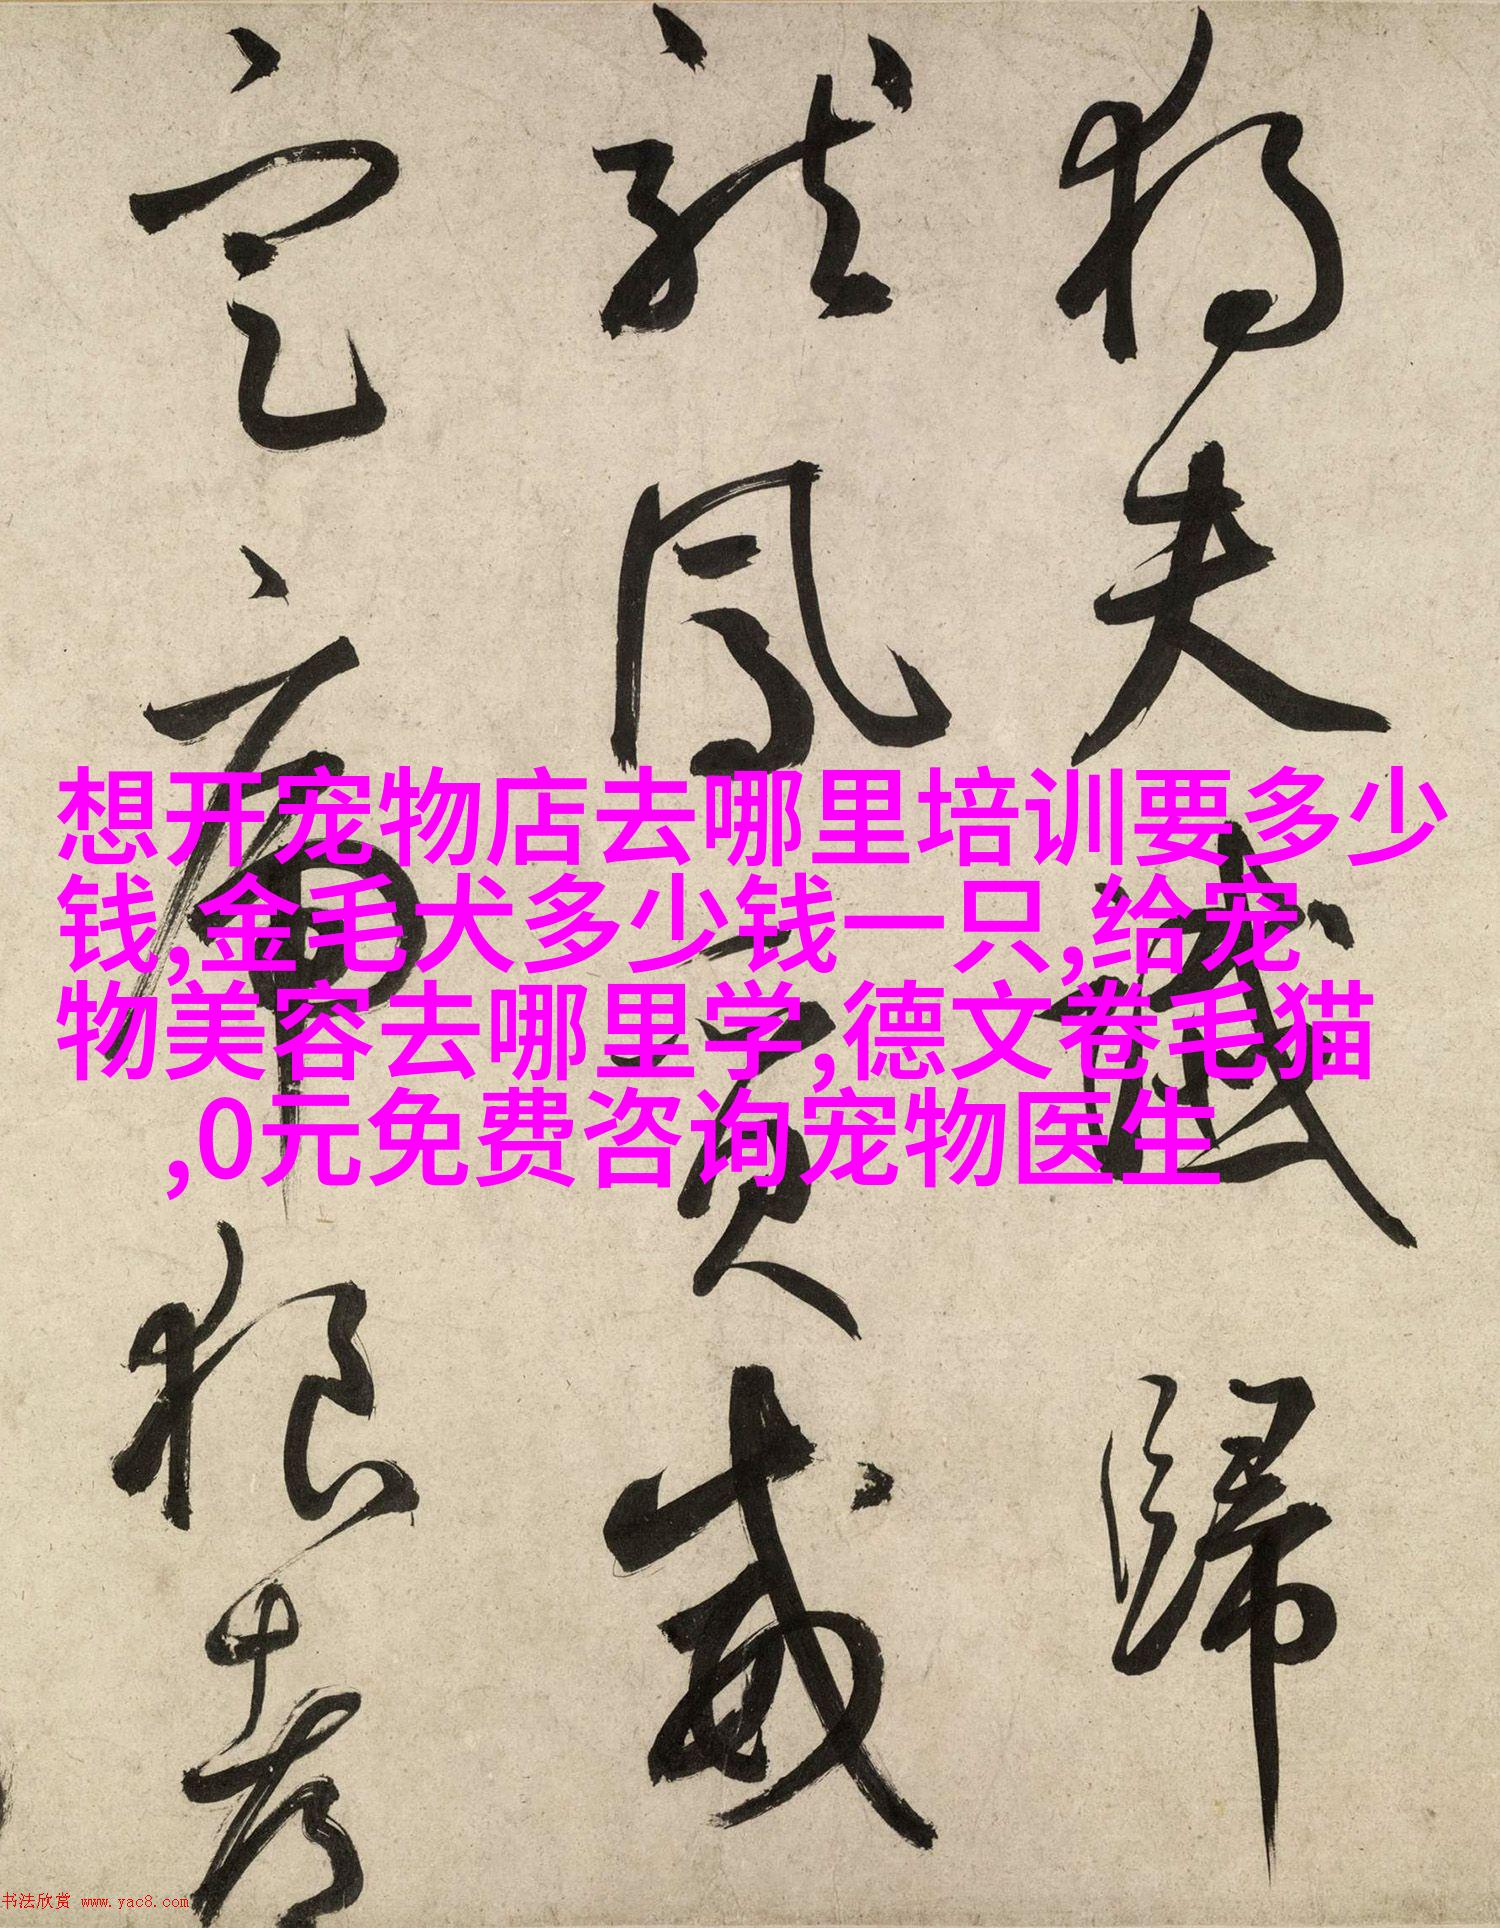 獨夫讖歸
龍鳳質威
定虎狼都
想开宠物店去哪里培训要多少
钱,金毛犬多少钱一只,给宠
物美容去哪里学,德文卷毛猫
,0元免费咨询宠物医生
书法欣赏 www.yac8.com